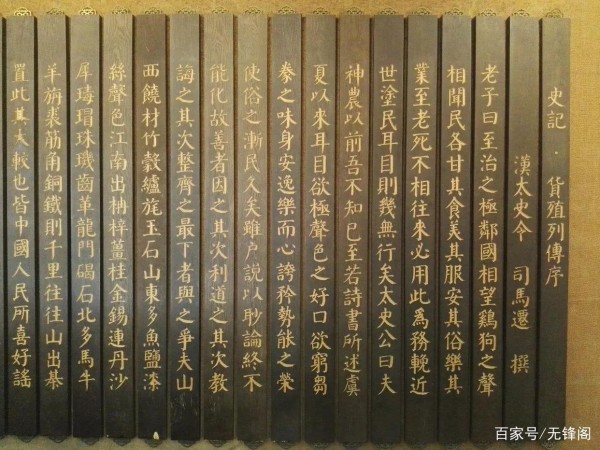 史記·貨殖列傳序
漢太史令 司馬遷 撰
老子曰至治之極鄰國相望鷄狗之聲
相聞民各甘其食美其服安其俗樂其
業至老死不相往來必用此爲務輓近
世塗民耳目則幾無行矣太史公曰夫
神農以前吾不知已至若詩書所述虞
夏以來耳目欲極聲色之好口欲窮芻
豢之味身安逸樂而心誇矜勢能之榮
使俗之漸民久矣雖户説以眇論終不
能化故善者因之其次利道之其次教
誨之其次整齊之最下者與之爭夫山
西饒材竹穀纑旄玉石山東多魚鹽漆
絲聲色江南出枏梓薑桂金錫連丹沙
犀瑇瑁珠璣齒革龍門碣石北多馬牛
羊旃裘筋角銅鐵則千里往往山出棊
置此其大較也皆中國人民所喜好謠
百家号/无锋阁